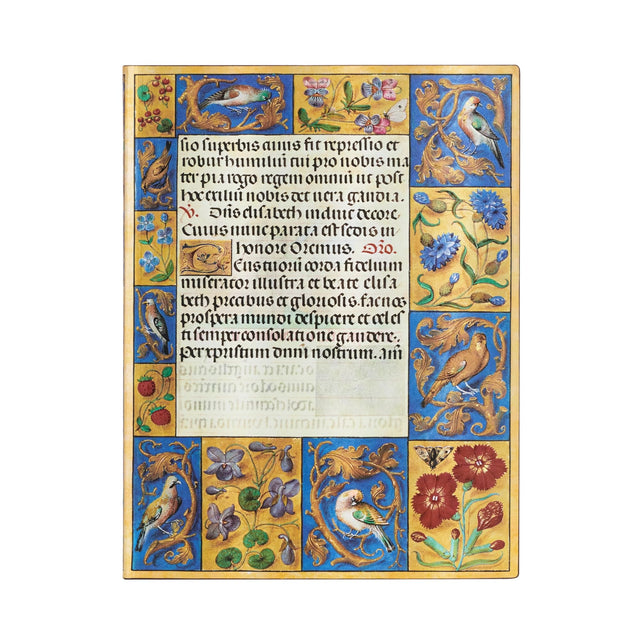 sio superbis anus fit repressio et
robur humiliũ tui pro nobis ma
ter pia rogo regem omniũ ut post
hoc exiliũ nobis det uera gaudia.
℣. Dñs elisabeth induit decore.
Cuius nunc parata est sedis in
honore Oremus. Or̃o.
Eus tuorũ corda fidelium
miserator illustra et beate elisa
beth precibus et gloriosis. fac nos
prospera mundi despicere et celes
ti semper consolatione gaudere.
per xpristum dnm̃ nostrum. am̃